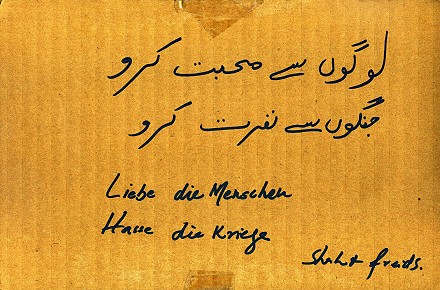 لوگوں سے محبت کرو
جنگوں سے نفرت کرو
Liebe die Menschen
Hasse die Kriege